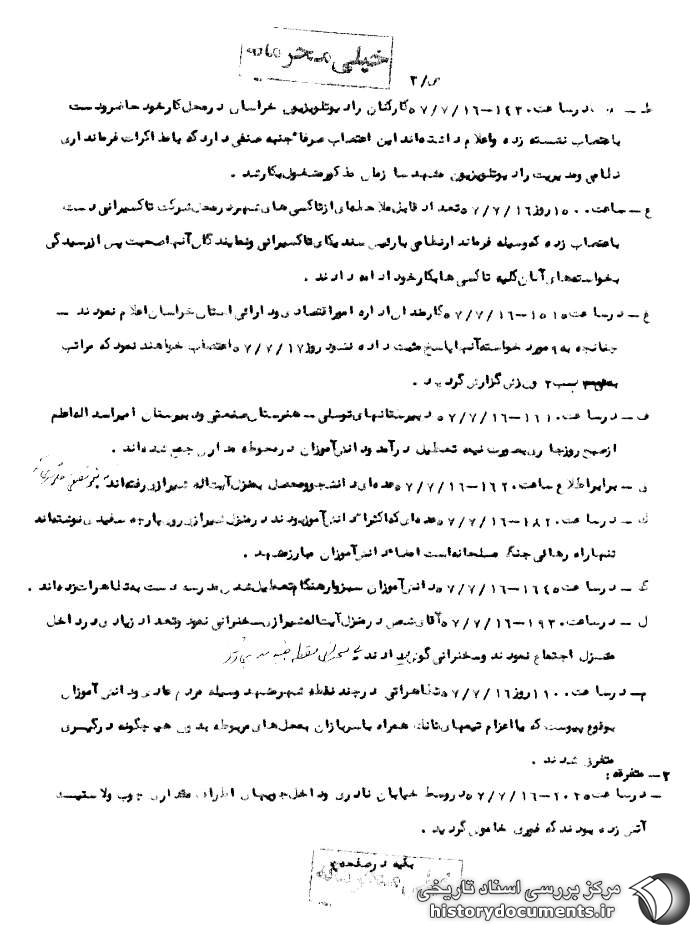 خیلی محرمانه
۲/
ط – در ساعت ۱۴۳۰–۵۷/۷/۱۶ کارکنان رادیو تلویزیون خراسان در محل کار خود حاضر و دست
باعتصاب نشسته زده واعلام داشته‌اند این اعتصاب صرفا جنبه صنفی دارد که با مذاکرات فرمانداری
نظامی ومدیریت رادیو تلویزیون مشهد تا زمان مذکور مشغول بکار شد .
ع – ساعت ۱۵۰۰ روز ۵۷/۷/۱۶ تعداد قابل ملاحظه‌ای از تاکسی های شهر در محل شرکت تاکسیرانی دست
باعتصاب زده که وسیله فرماندار نظامی با رئیس سندیکای تاکسیرانی ونمایندگان آنها صحبت پس از رسیدگی
بخواسته‌های آنان کلیه تاکسی ها بکار خود ادامه دادند .
غ – در ساعت ۱۵۱۵–۵۷/۷/۱۶ کارمندان اداره امور اقتصادی و دارائی استان خراسان اعلام نمودند –
چنانچه به ۹ مورد خواسته آنها پاسخ مثبت داده نشود روز ۵۷/۷/۱۷ اعتصاب خواهند نمود که مراتب
گزارش گردید .
ف – در ساعت ۱۶۱۰–۵۷/۷/۱۶ دبیرستانهای توسلی – هنرستان صنعتی ودبیرستان امیر اسداله اعلم
از صبح روز جاری بصورت نیمه تعطیل درآمد ودانش آموزان در محوطه مدارس جمع شده‌اند .
ق – برابر اطلاع ساعت ۱۶۲۰–۵۷/۷/۱۶ عده‌ای دانشجو ومحصل بمنزل آیت‌اله شیرازی رفته‌اند
ک – در ساعت ۱۸۲۰–۵۷/۷/۱۶ عده‌ای که اکثرا دانش آموز بودند در منزل شیرازی روی پارچه سفیدی نوشته‌اند
تنها راه رهائی جنگ مسلحانه است امضاء دانش آموزان مبارز مشهد .
گ – در ساعت ۱۶۴۵–۵۷/۷/۱۶ دانش آموزان سبزوار هنگام تعطیل شدن مدرسه دست به تظاهرات زده‌اند .
ل – در ساعت ۱۹۳۰–۵۷/۷/۱۶ آقای شمس در منزل آیت‌اله شیرازی سخنرانی نمود وتعداد زیادی در داخل
منزل اجتماع نمودند وسخنرانی گوش میدادند
م – در ساعت ۱۱۰۰ روز ۵۷/۷/۱۶ تظاهراتی در چند نقطه شهر مشهد وسیله مردم عادی ودانش آموزان
بوقوع پیوست که با اعزام تیمهای تانک همراه با سربازان بمحل‌های مربوطه بدون هیچگونه درگیری
متفرق شدند .
۲– متفرقه :
– در ساعت ۲۰۲۵–۵۷/۷/۱۶ در وسط خیابان نادری وداخل جویهای اطراف مقداری چوب ولاستیک
آتش زده بودند که فوری خاموش گردید .
بقیه در صفحه
مرکز بررسی اسناد تاریخی
historydocuments.ir